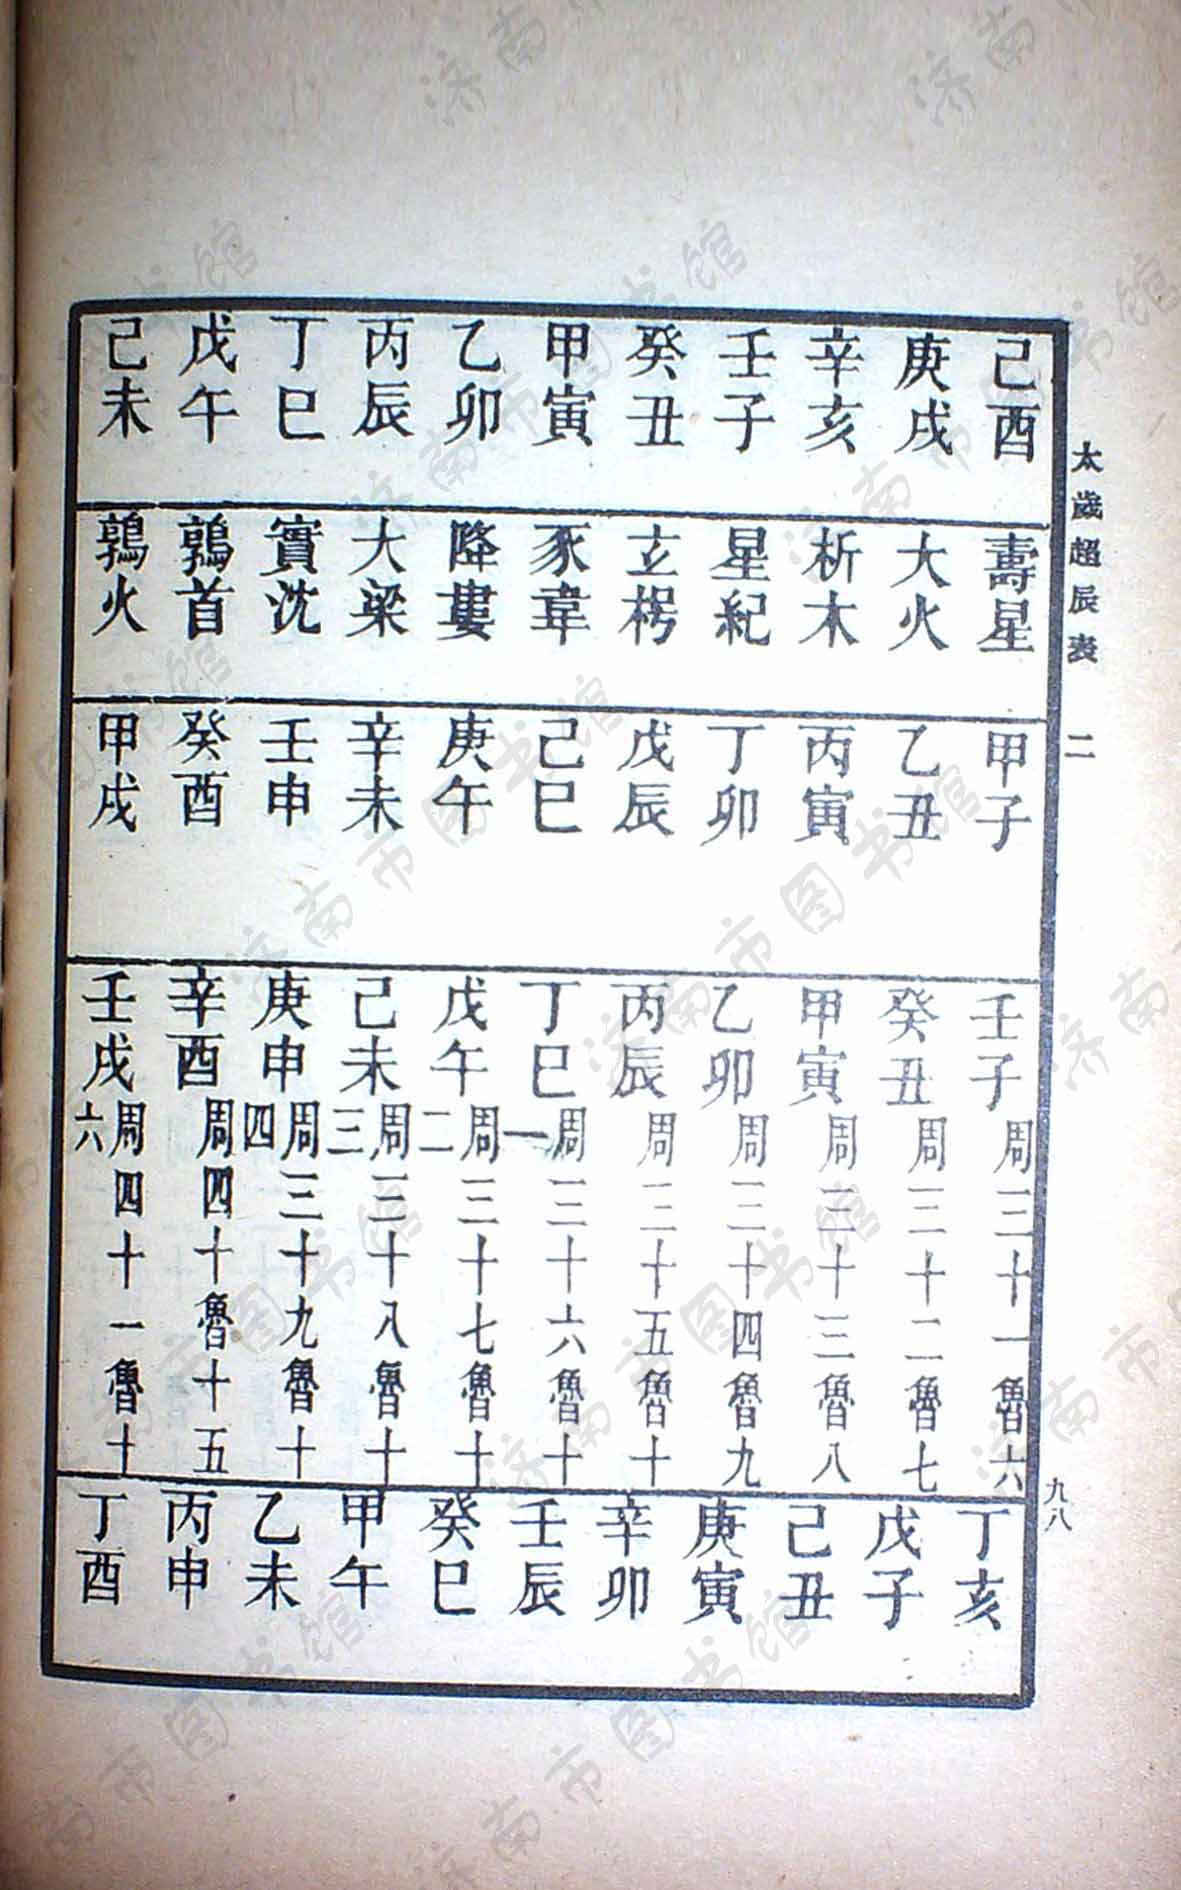 太歲超辰表 二 九八
己酉 壽星 甲子 壬子 周三十一魯六 丁亥
庚戌 大火 乙丑 癸丑 周三十二魯七 戊子
辛亥 析木 丙寅 甲寅 周三十三魯八 己丑
壬子 星紀 丁卯 乙卯 周三十四魯九 庚寅
癸丑 玄枵 戊辰 丙辰 周三十五魯十 辛卯
甲寅 豕韋 己巳 丁巳 周三十六魯十一 壬辰
乙卯 降婁 庚午 戊午 周三十七魯十二 癸巳
丙辰 大梁 辛未 己未 周三十八魯十三 甲午
丁巳 實沈 壬申 庚申 周三十九魯十四 乙未
戊午 鶉首 癸酉 辛酉 周四十魯十五 丙申
己未 鶉火 甲戌 壬戌 周四十一魯十六 丁酉
济南市图书馆